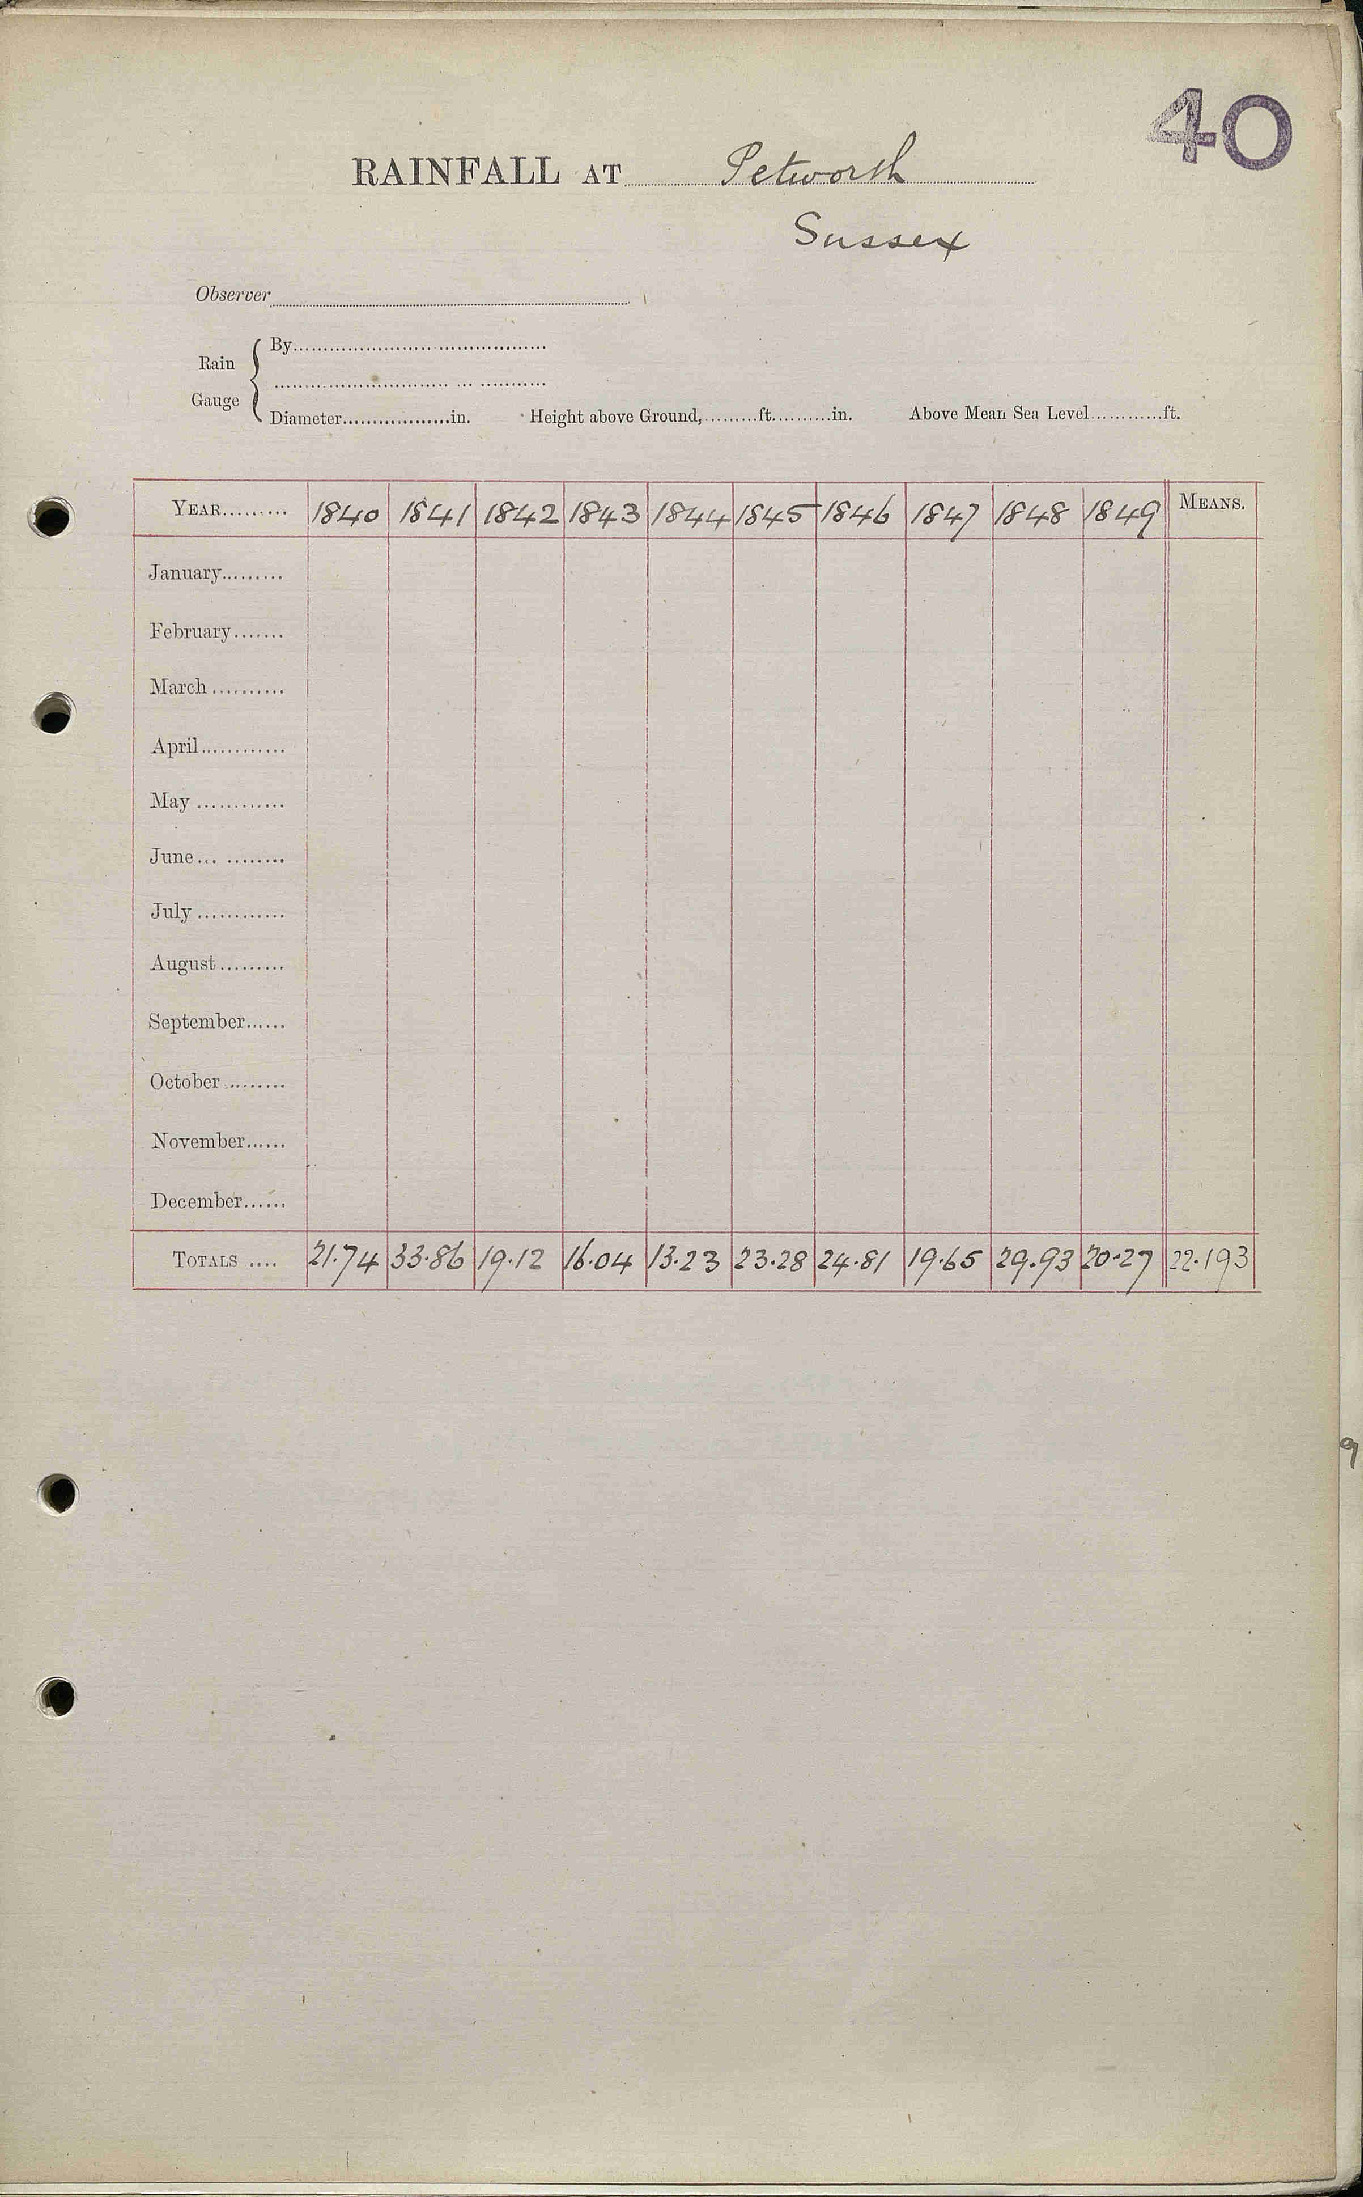 40
RAINFALL AT Petworth
Sussex
Observer
Rain Gauge
By
Diameter in. Height above Ground, ft. in. Above Mean Sea Level ft.
YEAR 1840 1841 1842 1843 1844 1845 1846 1847 1848 1849 MEANS.
January
February
March
April
May
June
July
August
September
October
November
December
TOTALS 21.74 33.86 19.12 16.04 13.23 23.28 24.81 19.65 29.93 20.27 22.193
9